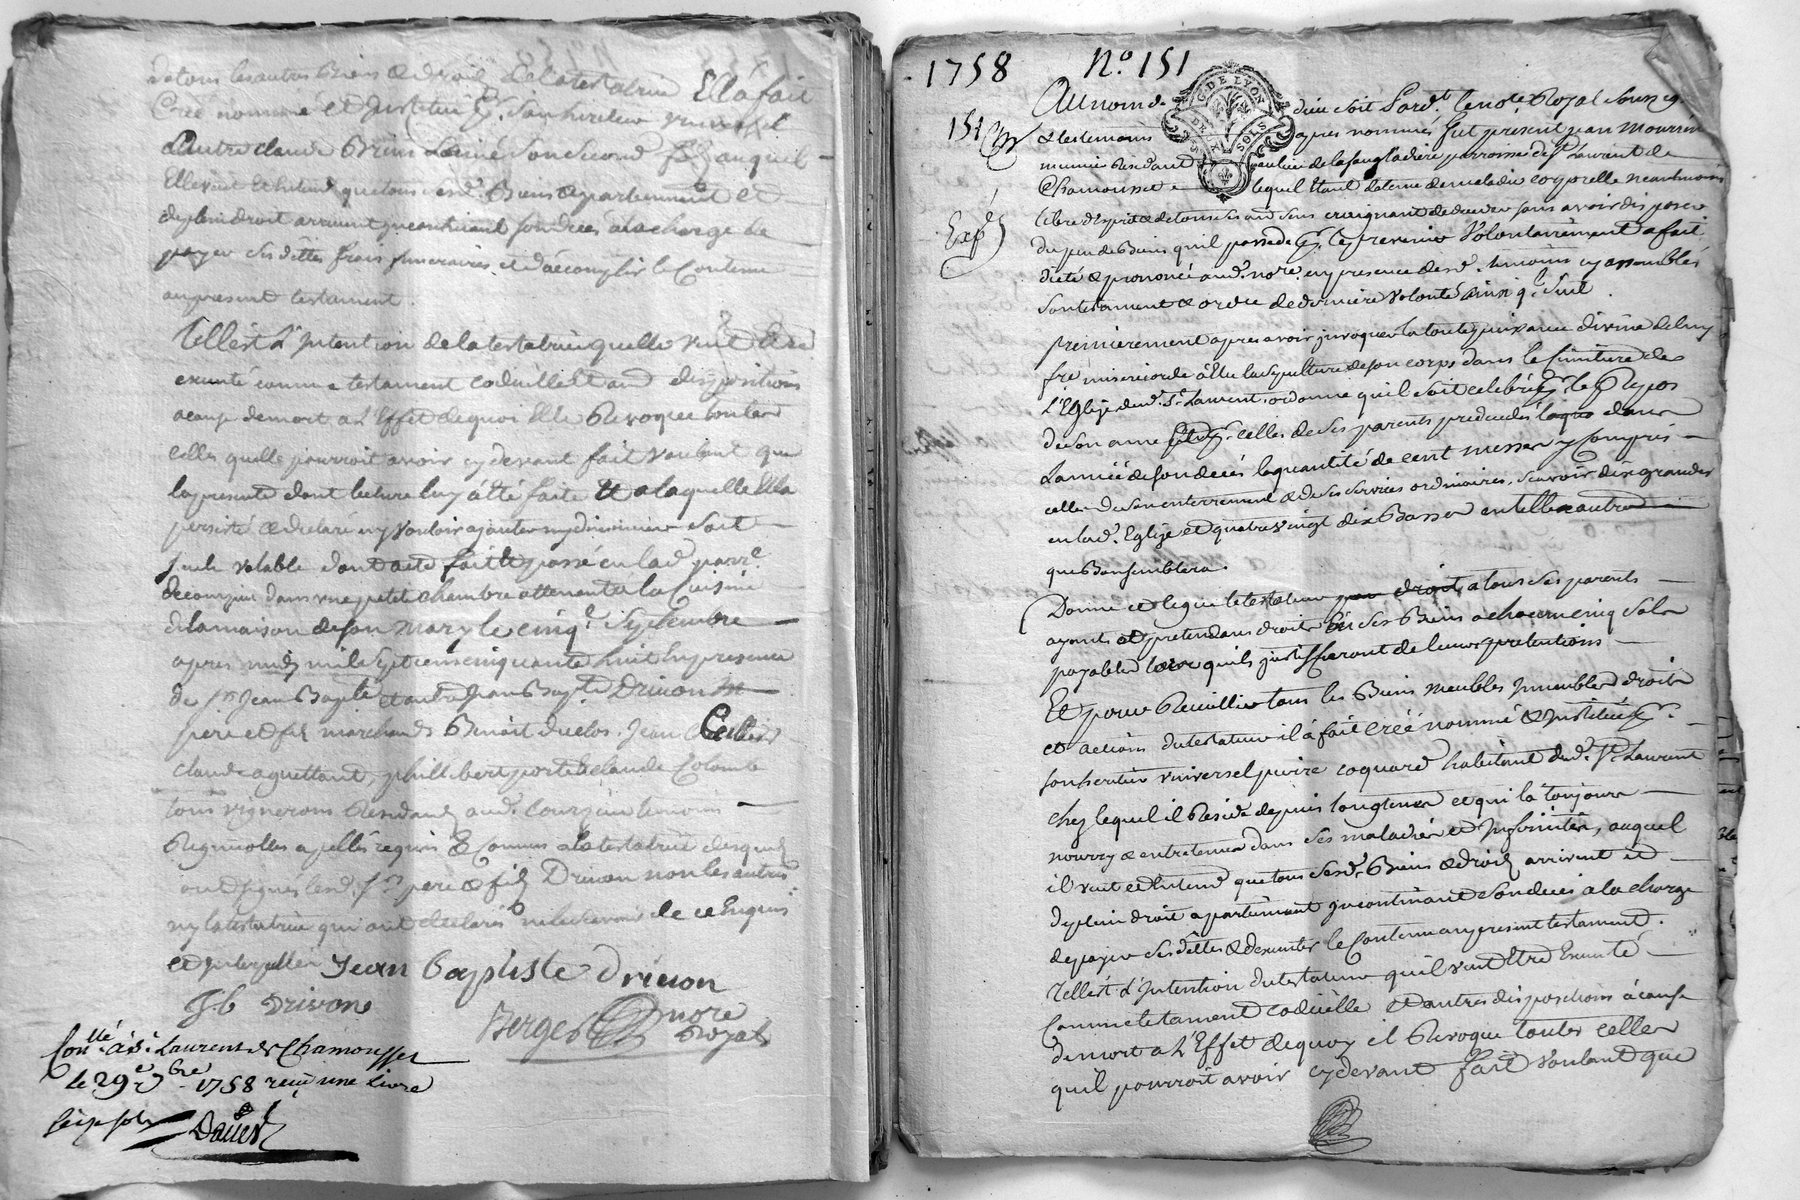 de tous les autres Biens & droits de la testatrice Ella fait
Créé nommé et Institué pr. son heritier universel
Claude Brun Lainé son second fils auquel
Elle veut et entend que tous sesd. Biens apartiennent et
de plein droit arrivent incontinant son deces a la charge de
payer ses dettes frais funeraires, et d'acomplir le Contenu
au present testament.
Telle est L'Intention de la testatrice quelle veut Etre
executé comme testament codicille et autre dispositions
a cause de mort, a L'Effet de quoi Elle Revoque toutes
celles quelle pourroit avoir cy devant fait voulant que
la presente dont lecture luy a été faite Et a laquelle Ella
persisté & declaré n'y vouloir ajouter ny diminuer soit
seule valable dont acte fait & passé en lad. parr.e
de courzieu dans une petite chambre attenante a la Cuisine
de la maison de son mary le cinq.e Septembre
apres midy mil sept cens cinquante huit En presence
de Sr. Jean Bapte. et autre Jean Bapte. Drivon
pere et fils marchands Benoit duclos, Jean Cellier
claude aguettant, phillibert porte & claude Colomb
tous vignerons Residants aud. Courzieu temoins
Regnicolles apellés requis & Connus a la testatrice desquels
ont signés lesd. Srs. pere & fils Drivon non les autres
ny la testatrice qui ont declarés ne le scavoir de ce Enquis
et Interpellés Jean Baptiste Drivon
Jb Drivon
Berger nore Royal
Con.llé a St. Laurent de Chamousset
le 29e 7bre 1758 reçu une livre
six sols
1758 No. 151
G. DE LYON
DEUX SOLS
151
Exp.é
Au nom de dieu soit Pardt. le notre Royal soussig.
& les temoins apres nommés fut present jean mourrin
Residant au lieu de la parroisse de St. Laurent de
Chamousset lequel Etant dateint de maladie corporelle neantmoins
libre d'Esprit & de tous ses aud. sens craignant de deceder sans avoir disposé
du peu de Biens qu'il possede pr. le prevenir Volontairement a fait
dicté & prononcé aud. nore. en presence desd. temoins cy assemblés
son testament & ordre de derniere volonté ainsi q. suit.
premierement apres avoir invoqué la toute puissance divine de luy
fre misericorde a Elu la sepulture de son corps dans le Cimitiere de
L'Eglise dud. St. Laurent, ordonne qu'il soit celebré pr. le Repos
de son ame et pr. celles de ses parents predecedés dans
L'année de son decés la quantité de cent messes y compris
celles de son enterrement & de ses services ordinaires, scavoir dix grandes
en lad. Eglise et quatre vingt dix Basses en telle & autre
que Bon semblera.
Donne et legue le testateur a tous ses parents
ayants et pretendans droits sur ses Biens a chacun cinq sols
payables lors qu'ils justiffieront de leurs pretentions
Et pour Recuillir tous les Biens meubles Immeubles droits
et actions du testateur il a fait créé nommé & Institué pr.
son heritier universel pierre coquard habitant dud. St. Laurent
chez lequel il Reside depuis longtems et qui la toujours
nourry & entretenu dans ses maladies et Infirmités, auquel
il veut et Entend que tous sesd. Biens & droits arrivent et
de plein droit apartiennent incontinant son deces a la charge
de payer ses dettes & d'executer le Contenu au present testament.
Telle est L'Intention du testateur qu'il veut Etre Executé
Comme testament codicille et autres dispositions a cause
de mort a L'Effet de quoy il Revoque toutes celles
qu'il pourroit avoir cy devant fait voulant que